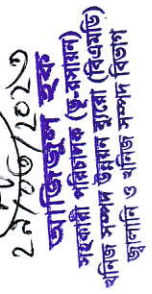 ২৭/০৬/২০২৩
আজিজুল হক
সহকারী পরিচালক (ভূ-রসায়ন)
খনিজ সম্পদ উন্নয়ন ব্যুরো (বিএমডি)
জ্বালানি ও খনিজ সম্পদ বিভাগ